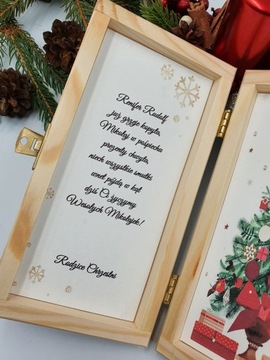 Renifer Rudolf
już grzeje kopytka,
Mikołaj w pośpiechu
prezenty chwyta,
niech wszystkie smutki
wnet pójdą w kąt
dziś Ci życzymy
Wesołych Mikołajek!
Rodzice Chrzestni